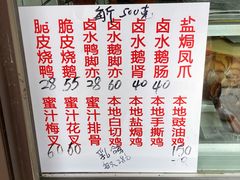 每斤500克
脆皮烧鸭 28
脆皮烧鹅 55
卤水鸭脚亦 28
卤水鹅脚亦 60
卤水鹅肾 40
卤水鹅肠 40
盐焗凤爪
蜜汁梅叉 60
蜜汁花叉 60
蜜汁排骨
本地白切鸡
本地盐焗鸡
本地手撕鸡
本地豉油鸡 150
乳鸽